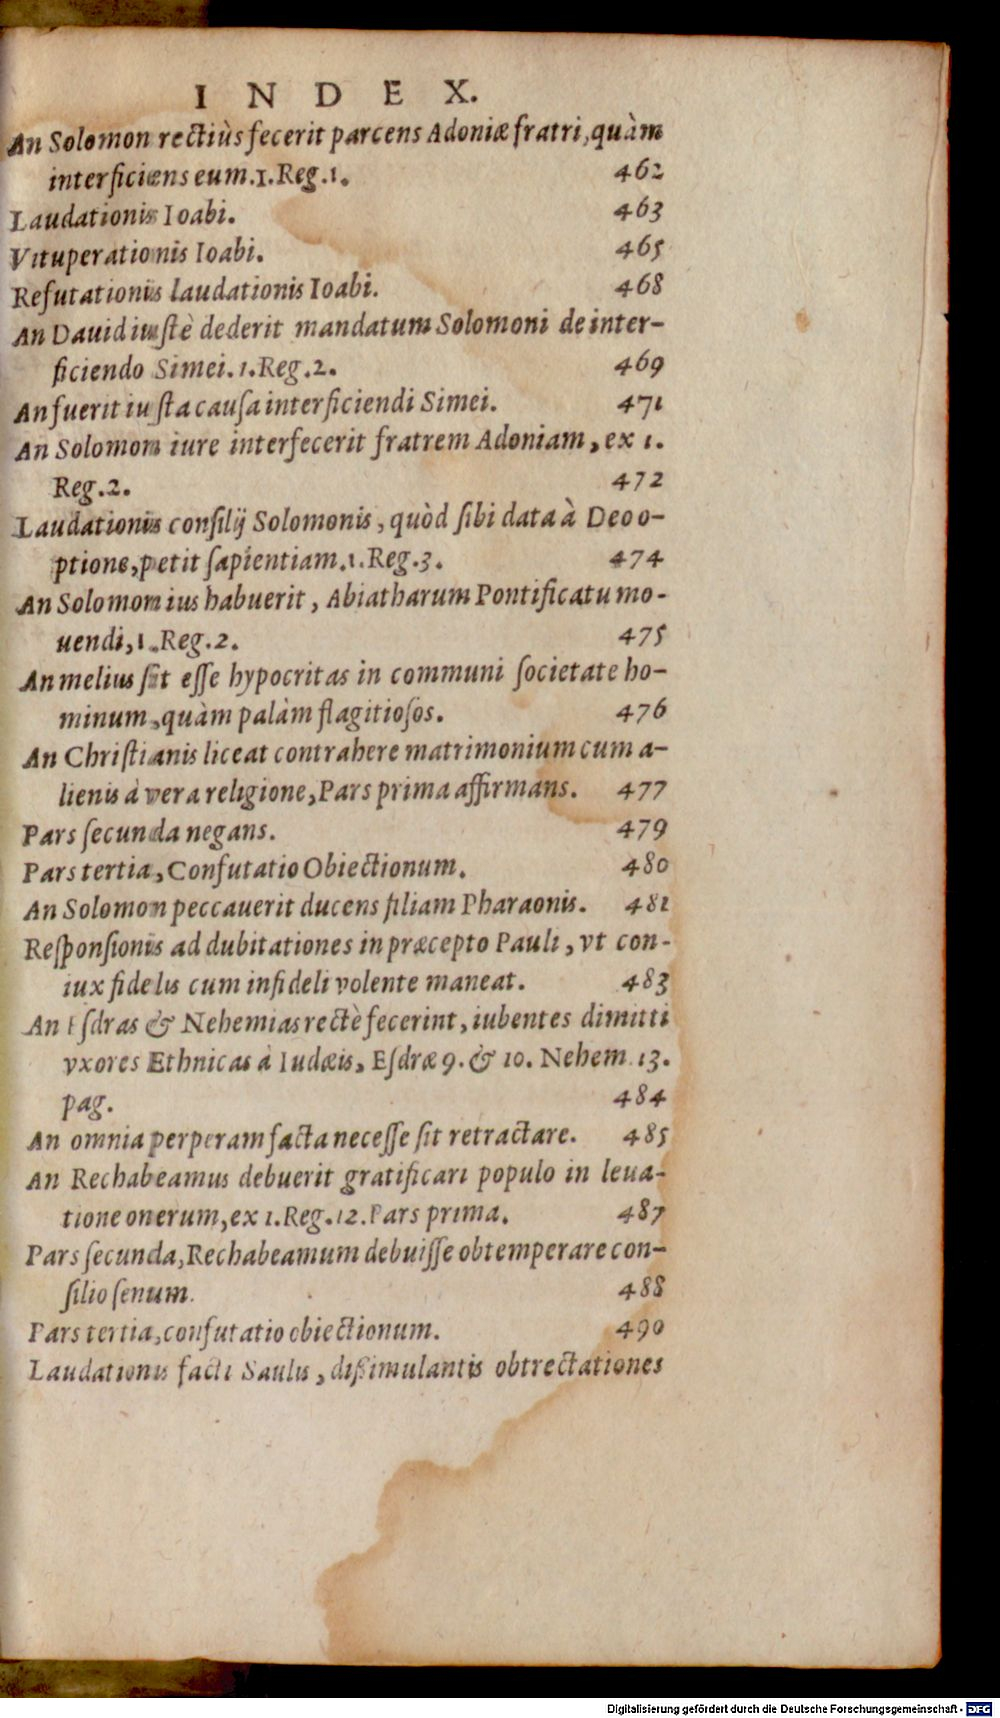 INDEX.
An Solomon rectiùs fecerit parcens Adoniæ fratri, quàm
interficiens eum. 1. Reg. 1. 462
Laudationis Ioabi. 463
Vituperationis Ioabi. 465
Refutationis laudationis Ioabi. 468
An Dauid iuſtè dederit mandatum Solomoni de inter-
ficiendo Simei. 1. Reg. 2. 469
An fuerit iuſta cauſa interficiendi Simei. 471
An Solomon iure interfecerit fratrem Adoniam, ex 1.
Reg. 2. 472
Laudationis conſilij Solomonis, quòd ſibi data à Deo o-
ptione, petit ſapientiam. 1. Reg. 3. 474
An Solomon ius habuerit, Abiatharum Pontificatu mo-
uendi, 1. Reg. 2. 475
An melius ſit eſſe hypocritas in communi ſocietate ho-
minum, quàm palàm flagitioſos. 476
An Chriſtianis liceat contrahere matrimonium cum a-
lienis à vera religione, Pars prima affirmans. 477
Pars ſecunda negans. 479
Pars tertia, Confutatio Obiectionum. 480
An Solomon peccauerit ducens filiam Pharaonis. 481
Reſponſionis ad dubitationes in præcepto Pauli, vt con-
iux fidelis cum infideli volente maneat. 483
An Eſdras & Nehemias rectè fecerint, iubentes dimitti
vxores Ethnicas à Iudæis, Eſdræ 9. & 10. Nehem. 13.
pag. 484
An omnia perperam facta neceſſe ſit retractare. 485
An Rechabeamus debuerit gratificari populo in leua-
tione onerum, ex 1. Reg. 12. Pars prima. 487
Pars ſecunda, Rechabeamum debuiſſe obtemperare con-
ſilio ſenum. 488
Pars tertia, confutatio obiectionum. 490
Laudationis facti Saulis, dißimulantis obtrectationes
Digitalisierung gefördert durch die Deutsche Forschungsgemeinschaft - DFG